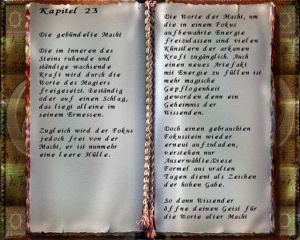 Kapitel 23
Die gebündelte Macht
Die im Inneren des
Steins ruhende und
ständig wachsende
Kraft wird durch die
Worte des Magiers
freigesetzt. Beständig
oder auf einen Schlag,
das liegt alleine im
seinem Ermessen.
Zugleich wird der Fokus
jedoch frei von der
Macht, er ist nunmehr
eine leere Hülle.
Die Worte der Macht, um
die in einem Fokus
aufbewahrte Energie
freizulassen sind vielen
Künstlern der arkanen
Kraft zugänglich. Auch
einen neues Artefakt
mit Energie zu füllen ist
mehr magische
Gepflogenheit
geworden denn ein
Geheimnis der
Wissenden.
Doch einen gebrauchten
Fokusstein wieder
erneut aufzuladen,
verstehen nur
Auserwählte. Diese
Formel aus uralten
Tagen dient als Zeichen
der hohen Gabe.
So dann Wissender
öffne deinen Geist für
die Worte alter Macht